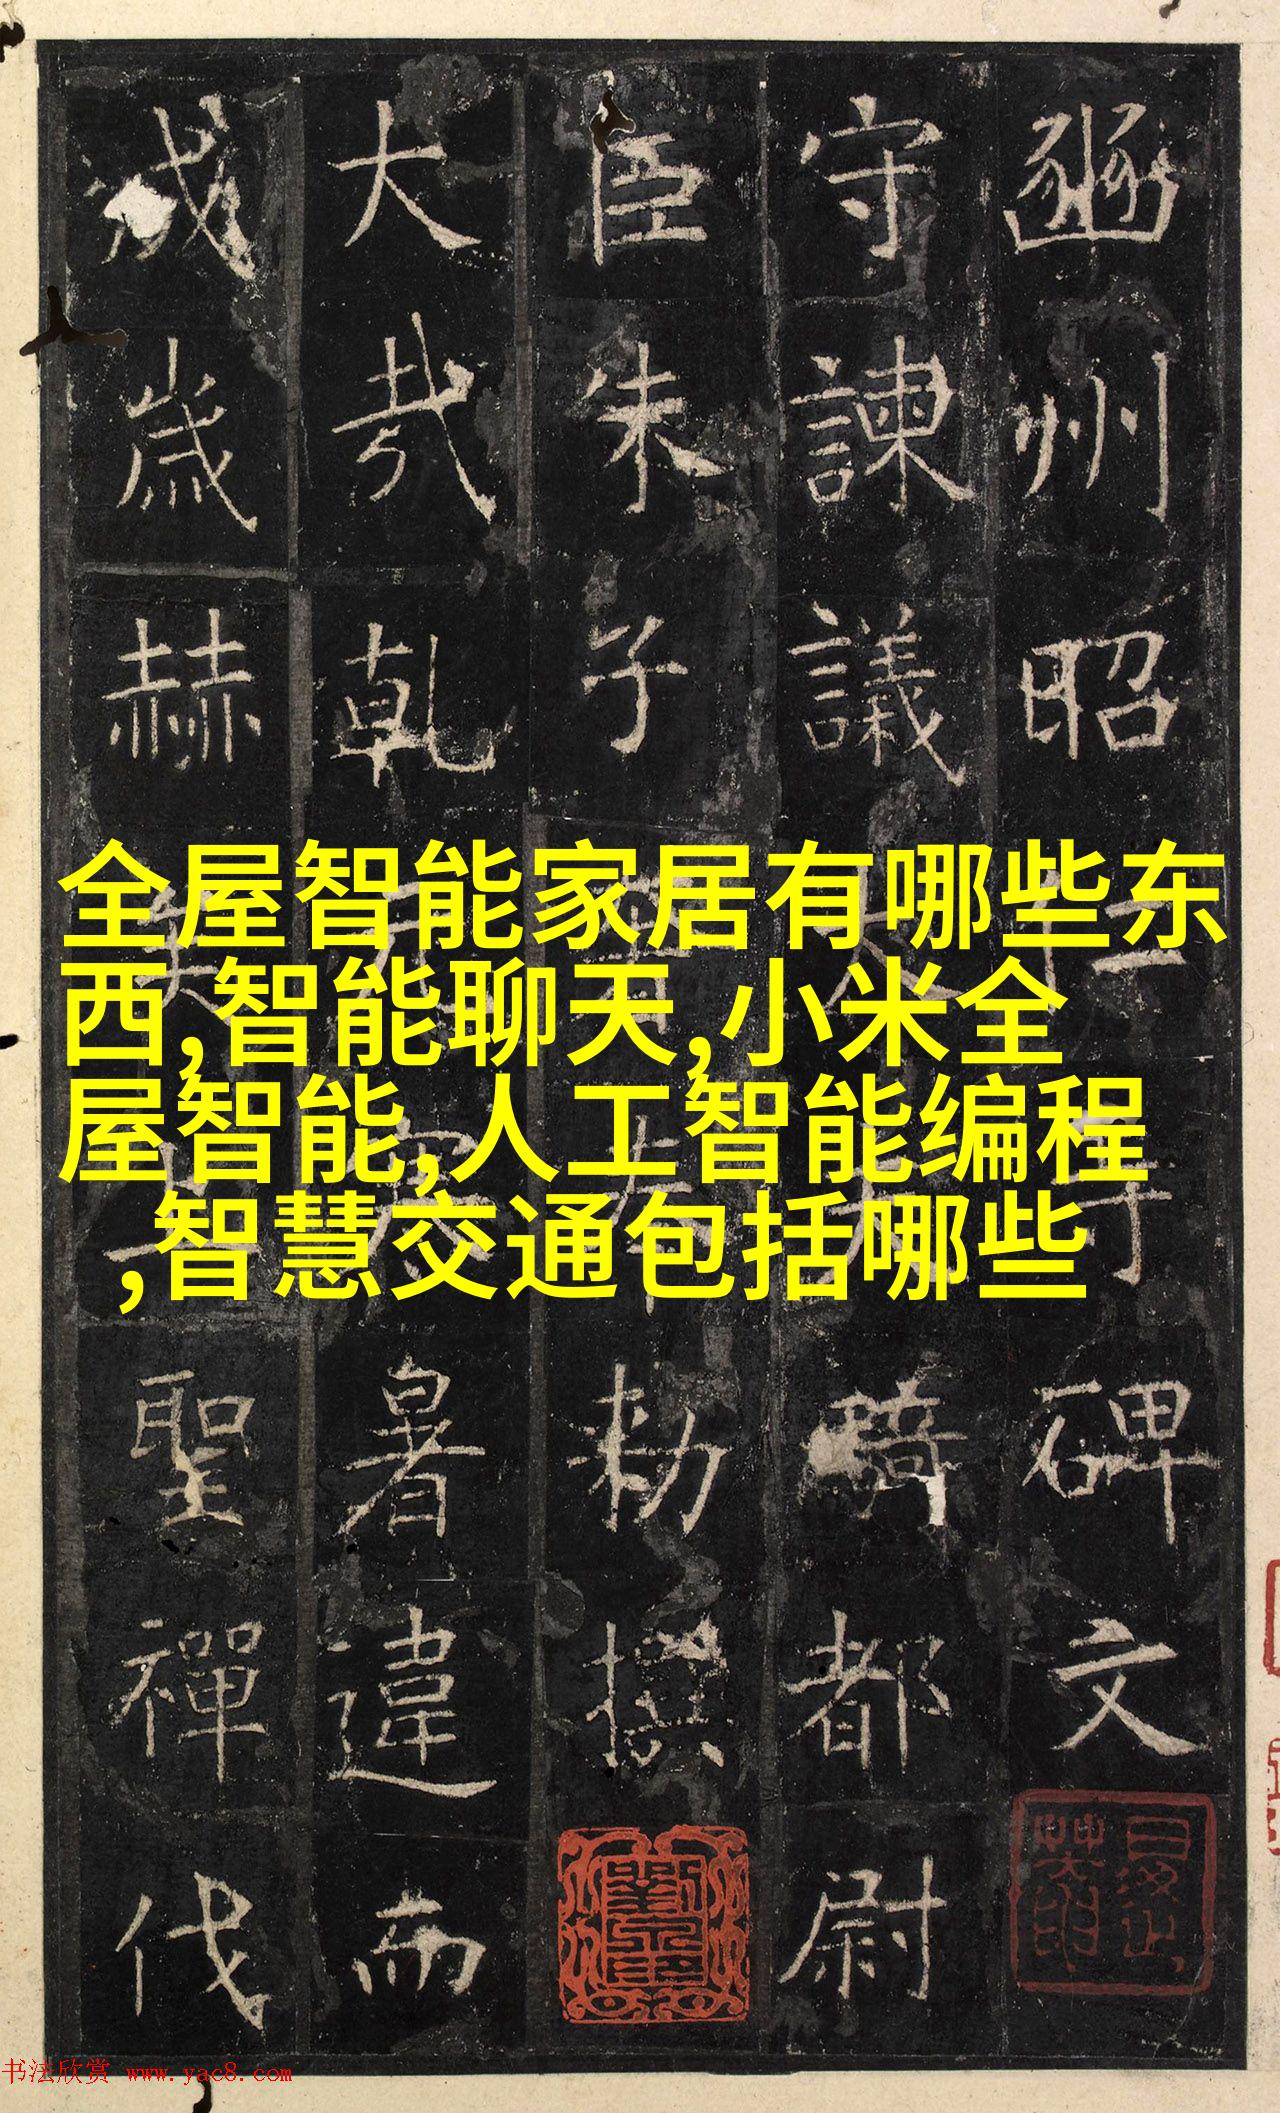 豳州昭仁碑文
守諫議騎都尉
臣朱子勅撰
大哉乾暑違而
成歲赫聖禪代
全屋智能家居有哪些东
西,智能聊天,小米全
屋智能,人工智能编程
,智慧交通包括哪些
书法欣赏 www.yac8.com